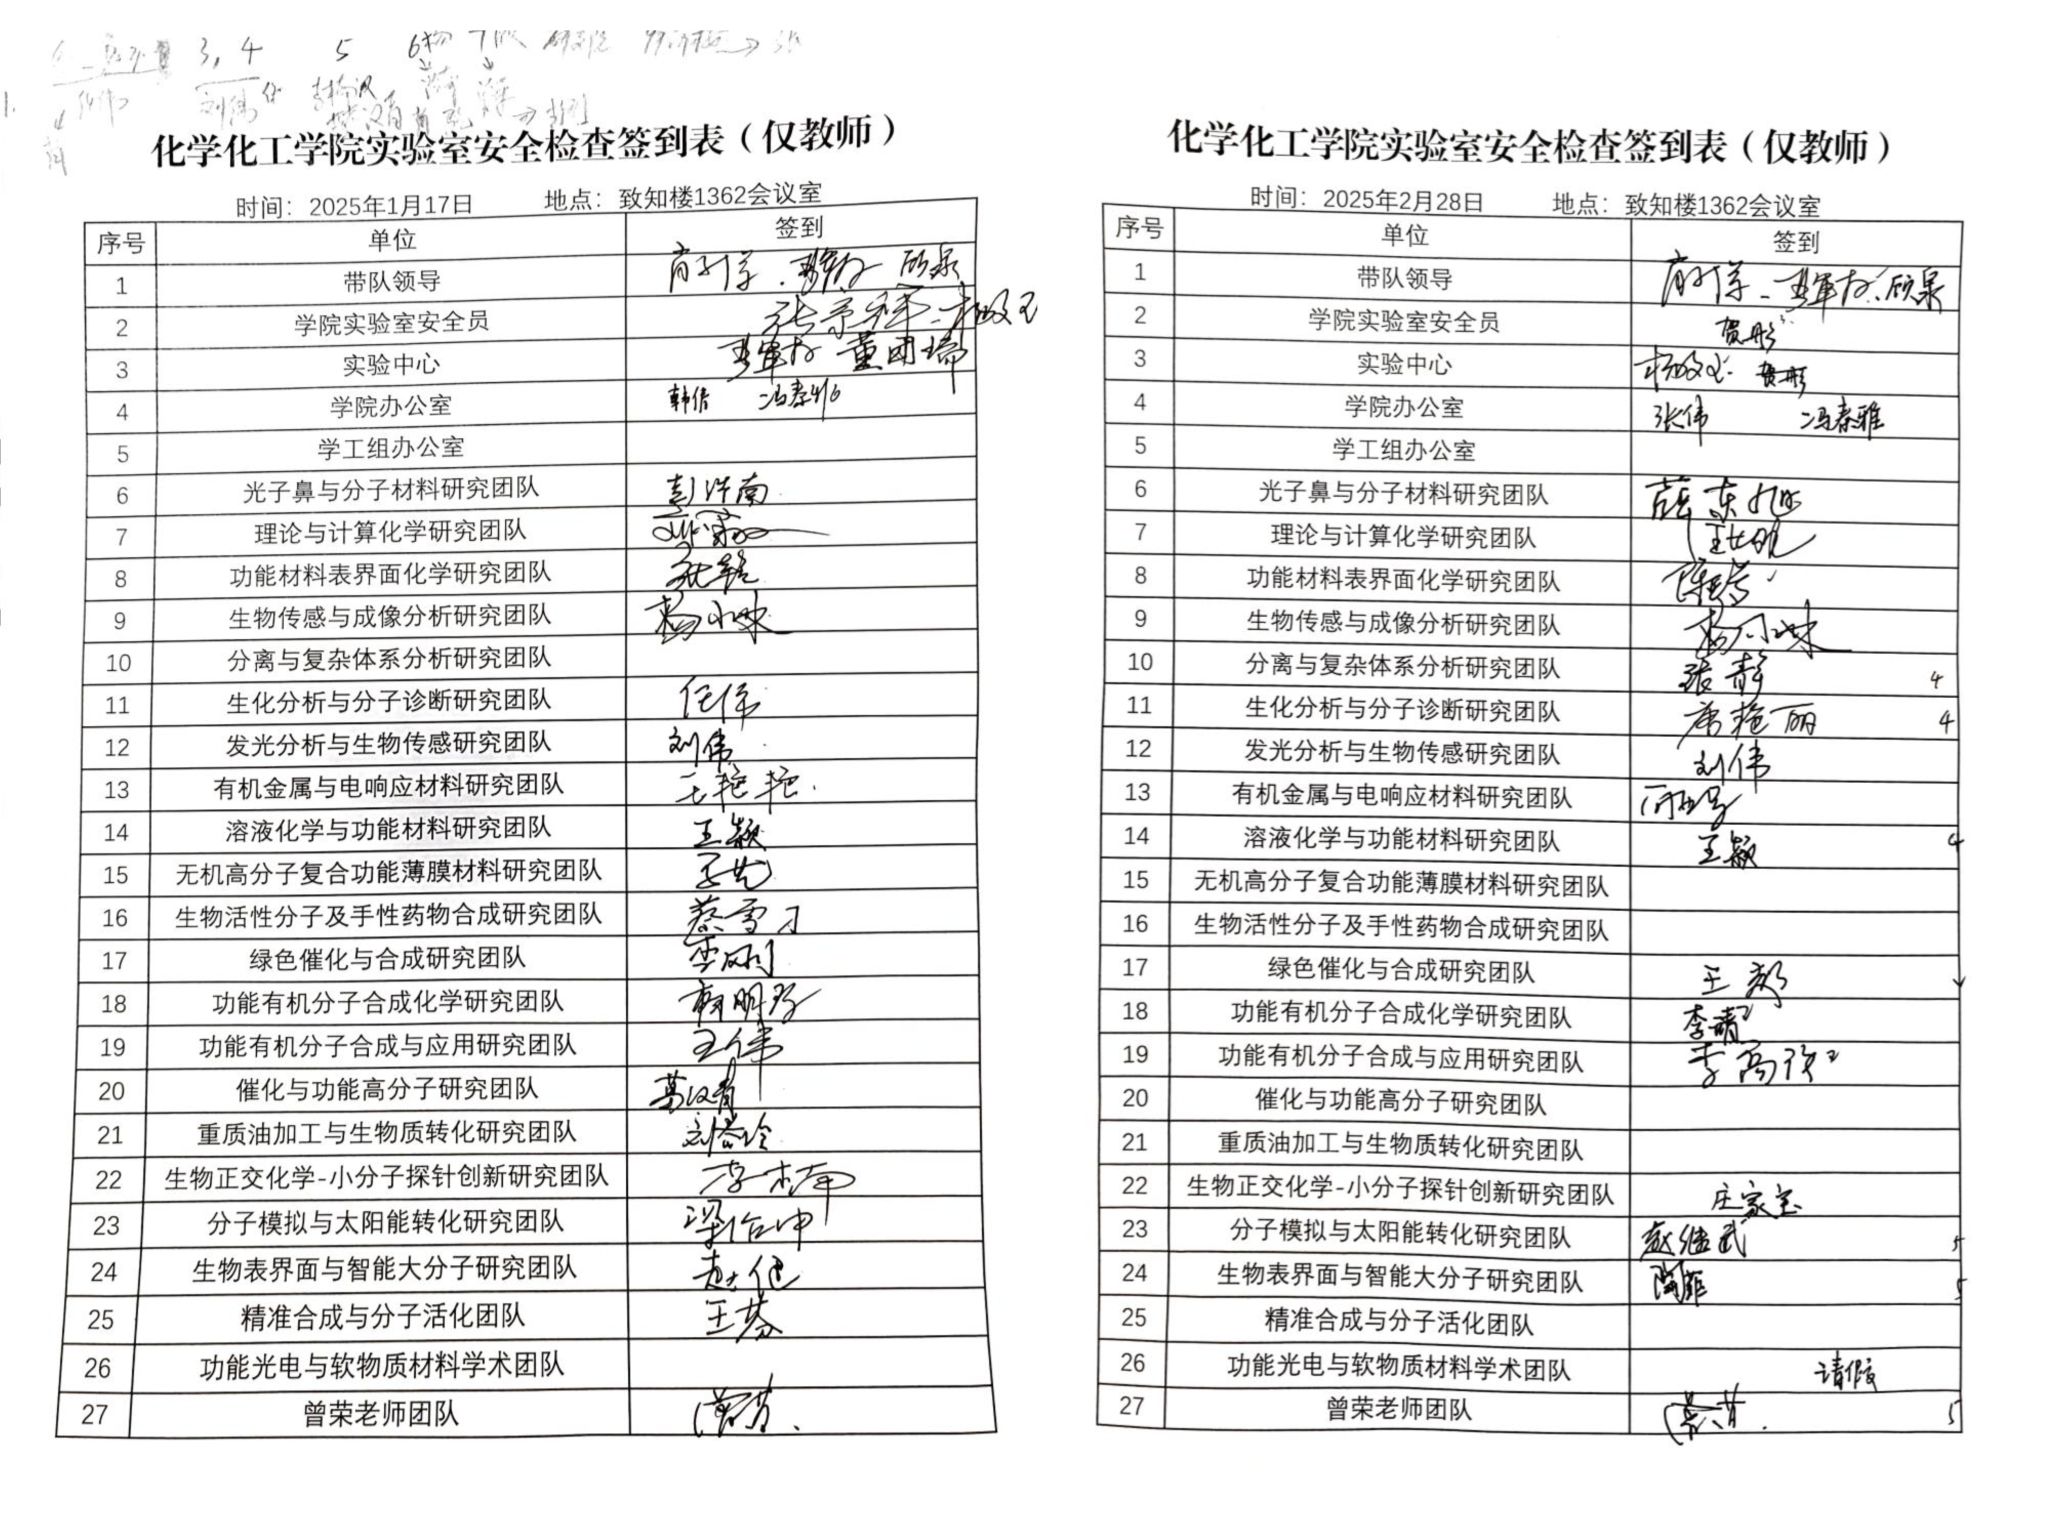 3, 4 5
刘伟
化学化工学院实验室安全检查签到表（仅教师）
时间：2025年1月17日 地点：致知楼1362会议室
序号 单位 签到
1 带队领导
2 学院实验室安全员
3 实验中心
4 学院办公室 韩倩 冯春雅
5 学工组办公室
6 光子鼻与分子材料研究团队 彭许南
7 理论与计算化学研究团队
8 功能材料表界面化学研究团队
9 生物传感与成像分析研究团队 杨小咪
10 分离与复杂体系分析研究团队
11 生化分析与分子诊断研究团队 任伟
12 发光分析与生物传感研究团队 刘伟
13 有机金属与电响应材料研究团队 王艳艳
14 溶液化学与功能材料研究团队 王颖
15 无机高分子复合功能薄膜材料研究团队
16 生物活性分子及手性药物合成研究团队
17 绿色催化与合成研究团队 李刚
18 功能有机分子合成化学研究团队
19 功能有机分子合成与应用研究团队 王伟
20 催化与功能高分子研究团队 葛汉青
21 重质油加工与生物质转化研究团队
22 生物正交化学-小分子探针创新研究团队
23 分子模拟与太阳能转化研究团队
24 生物表界面与智能大分子研究团队 赵健
25 精准合成与分子活化团队 王芬
26 功能光电与软物质材料学术团队
27 曾荣老师团队
化学化工学院实验室安全检查签到表（仅教师）
时间：2025年2月28日 地点：致知楼1362会议室
序号 单位 签到
1 带队领导
2 学院实验室安全员 贺彤
3 实验中心 贺彤
4 学院办公室 张伟 冯春雅
5 学工组办公室
6 光子鼻与分子材料研究团队 薛东旭
7 理论与计算化学研究团队
8 功能材料表界面化学研究团队
9 生物传感与成像分析研究团队
10 分离与复杂体系分析研究团队 张静 4
11 生化分析与分子诊断研究团队 唐艳丽 4
12 发光分析与生物传感研究团队 刘伟
13 有机金属与电响应材料研究团队
14 溶液化学与功能材料研究团队 王颖 4
15 无机高分子复合功能薄膜材料研究团队
16 生物活性分子及手性药物合成研究团队
17 绿色催化与合成研究团队
18 功能有机分子合成化学研究团队 李晴
19 功能有机分子合成与应用研究团队
20 催化与功能高分子研究团队
21 重质油加工与生物质转化研究团队
22 生物正交化学-小分子探针创新研究团队 庄家宝
23 分子模拟与太阳能转化研究团队 赵继武 5
24 生物表界面与智能大分子研究团队 陶菲 5
25 精准合成与分子活化团队
26 功能光电与软物质材料学术团队 请假
27 曾荣老师团队 5